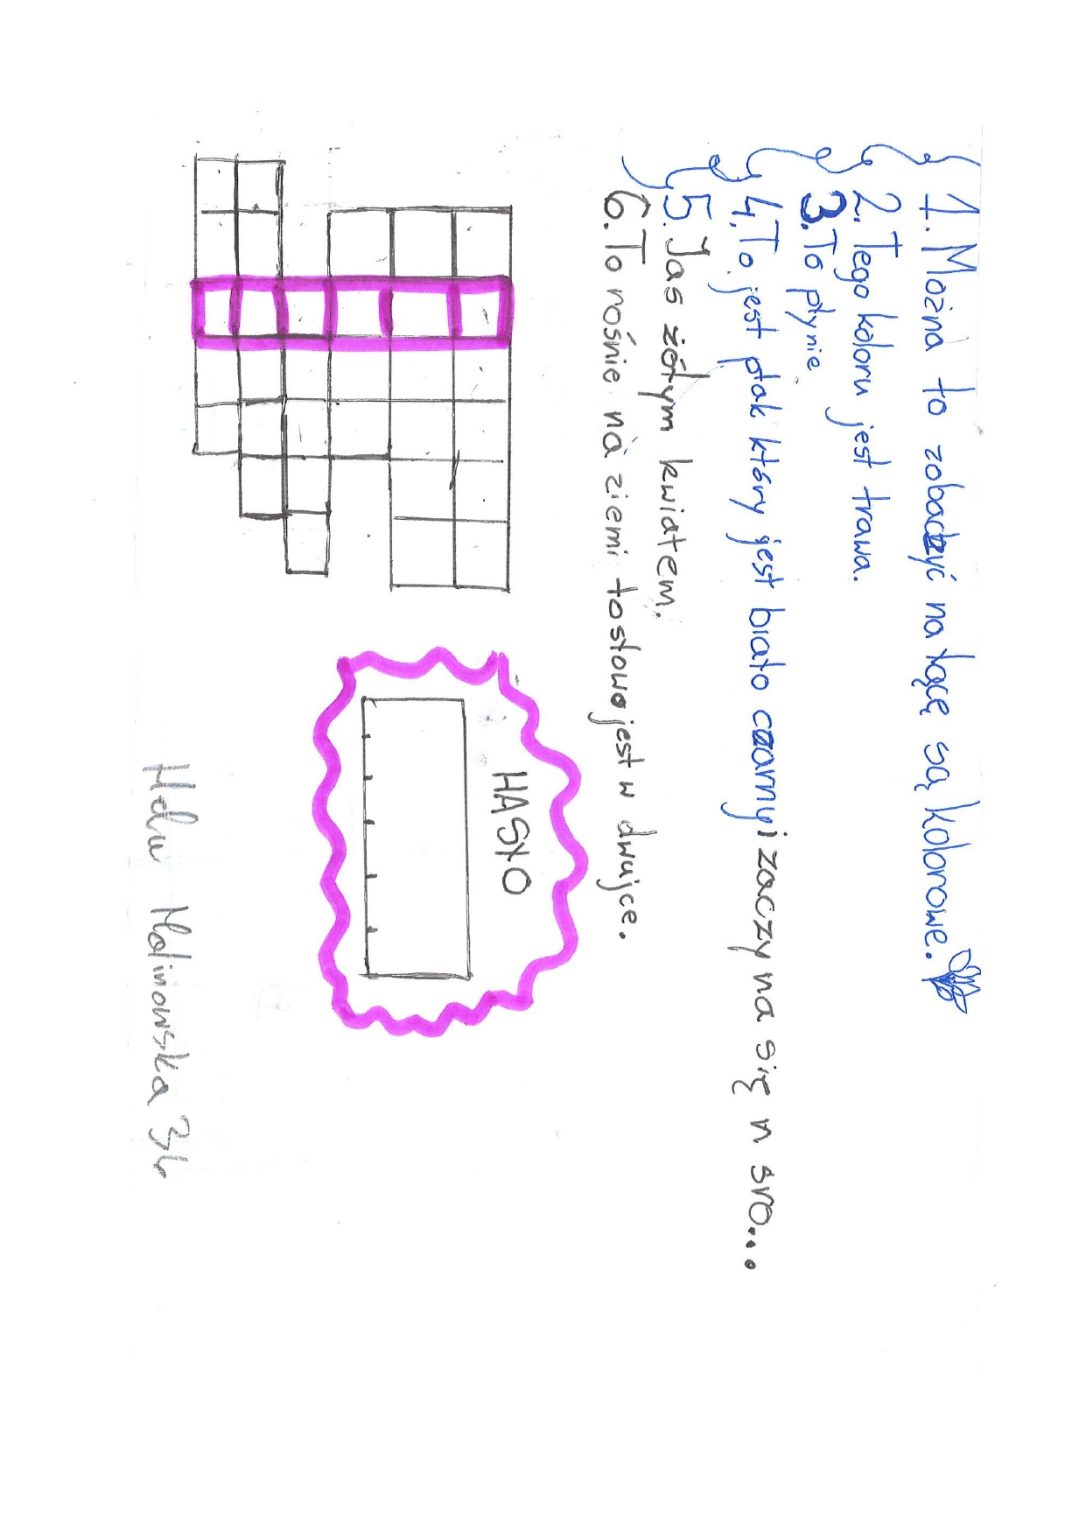 1. Można to zobaczyć na łącę są kolorowe.
2. Tego koloru jest trawa.
3. To płynie
4. To jest ptak który jest biało czarny i zaczyna się n sro...
5. Jas żółtym kwiatem.
6. To rośnie na ziemi to słowo jest w dwujce.
HASŁO
Malinowska 3b